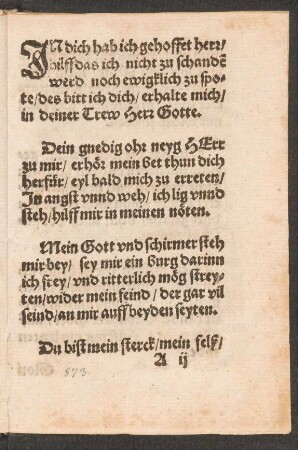 IN dich hab ich gehoffet herr/
hilff das ich nicht zu schandẽ
werd/ noch ewigklich zu spo-
te/ des bitt ich dich/ erhalte mich/
in deiner Trew Herr Gotte.
Dein gnedig ohr neyg HErr
zu mir/ erhör mein bet thun dich
herfür/ eyl bald mich zu erreten/
In angst vnnd weh/ ich lig vnnd
steh/ hilff mir in meinen nöten.
Mein Gott vnd schirmer steh
mir bey/ sey mir ein burg darinn
ich frey/ vnd ritterlich mög strey-
ten/ wider mein feind/ der gar vil
seind/ an mir auff beyden seyten.
Du bist mein sterck/ mein felß/
A ij
873.